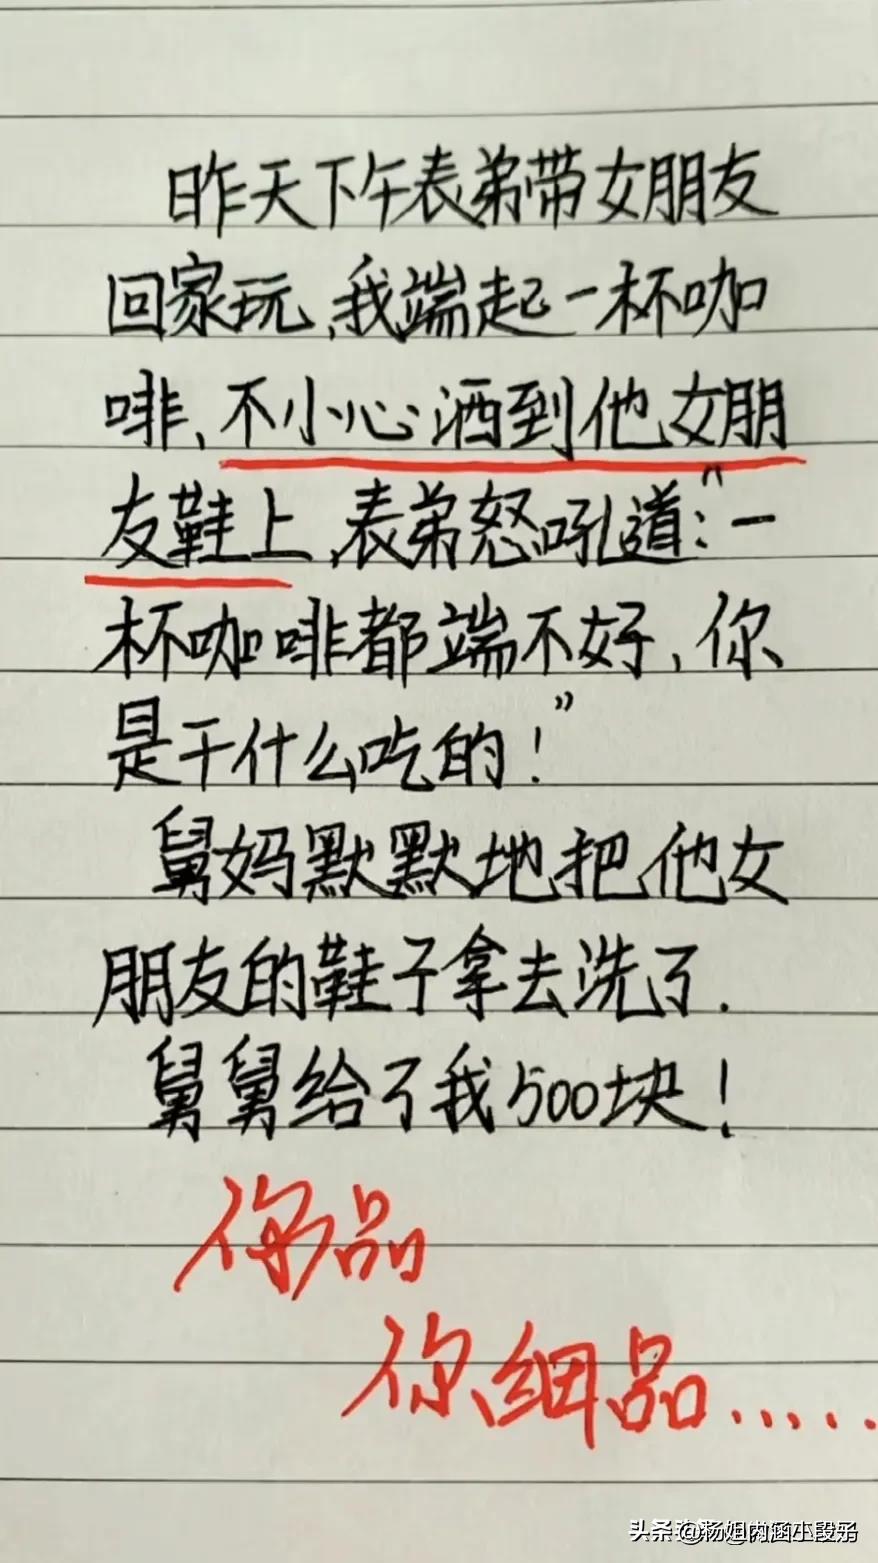 昨天下午表弟带女朋友
回家玩,我端起一杯咖
啡、不小心洒到他女朋
友鞋上,表弟怒吼道:“一
杯咖啡都端不好,你
是干什么吃的!”
舅妈默默地把他女
朋友的鞋子拿去洗了.
舅舅给了我500块!
你品
你细品.....
头条 @杨姐内涵小段子